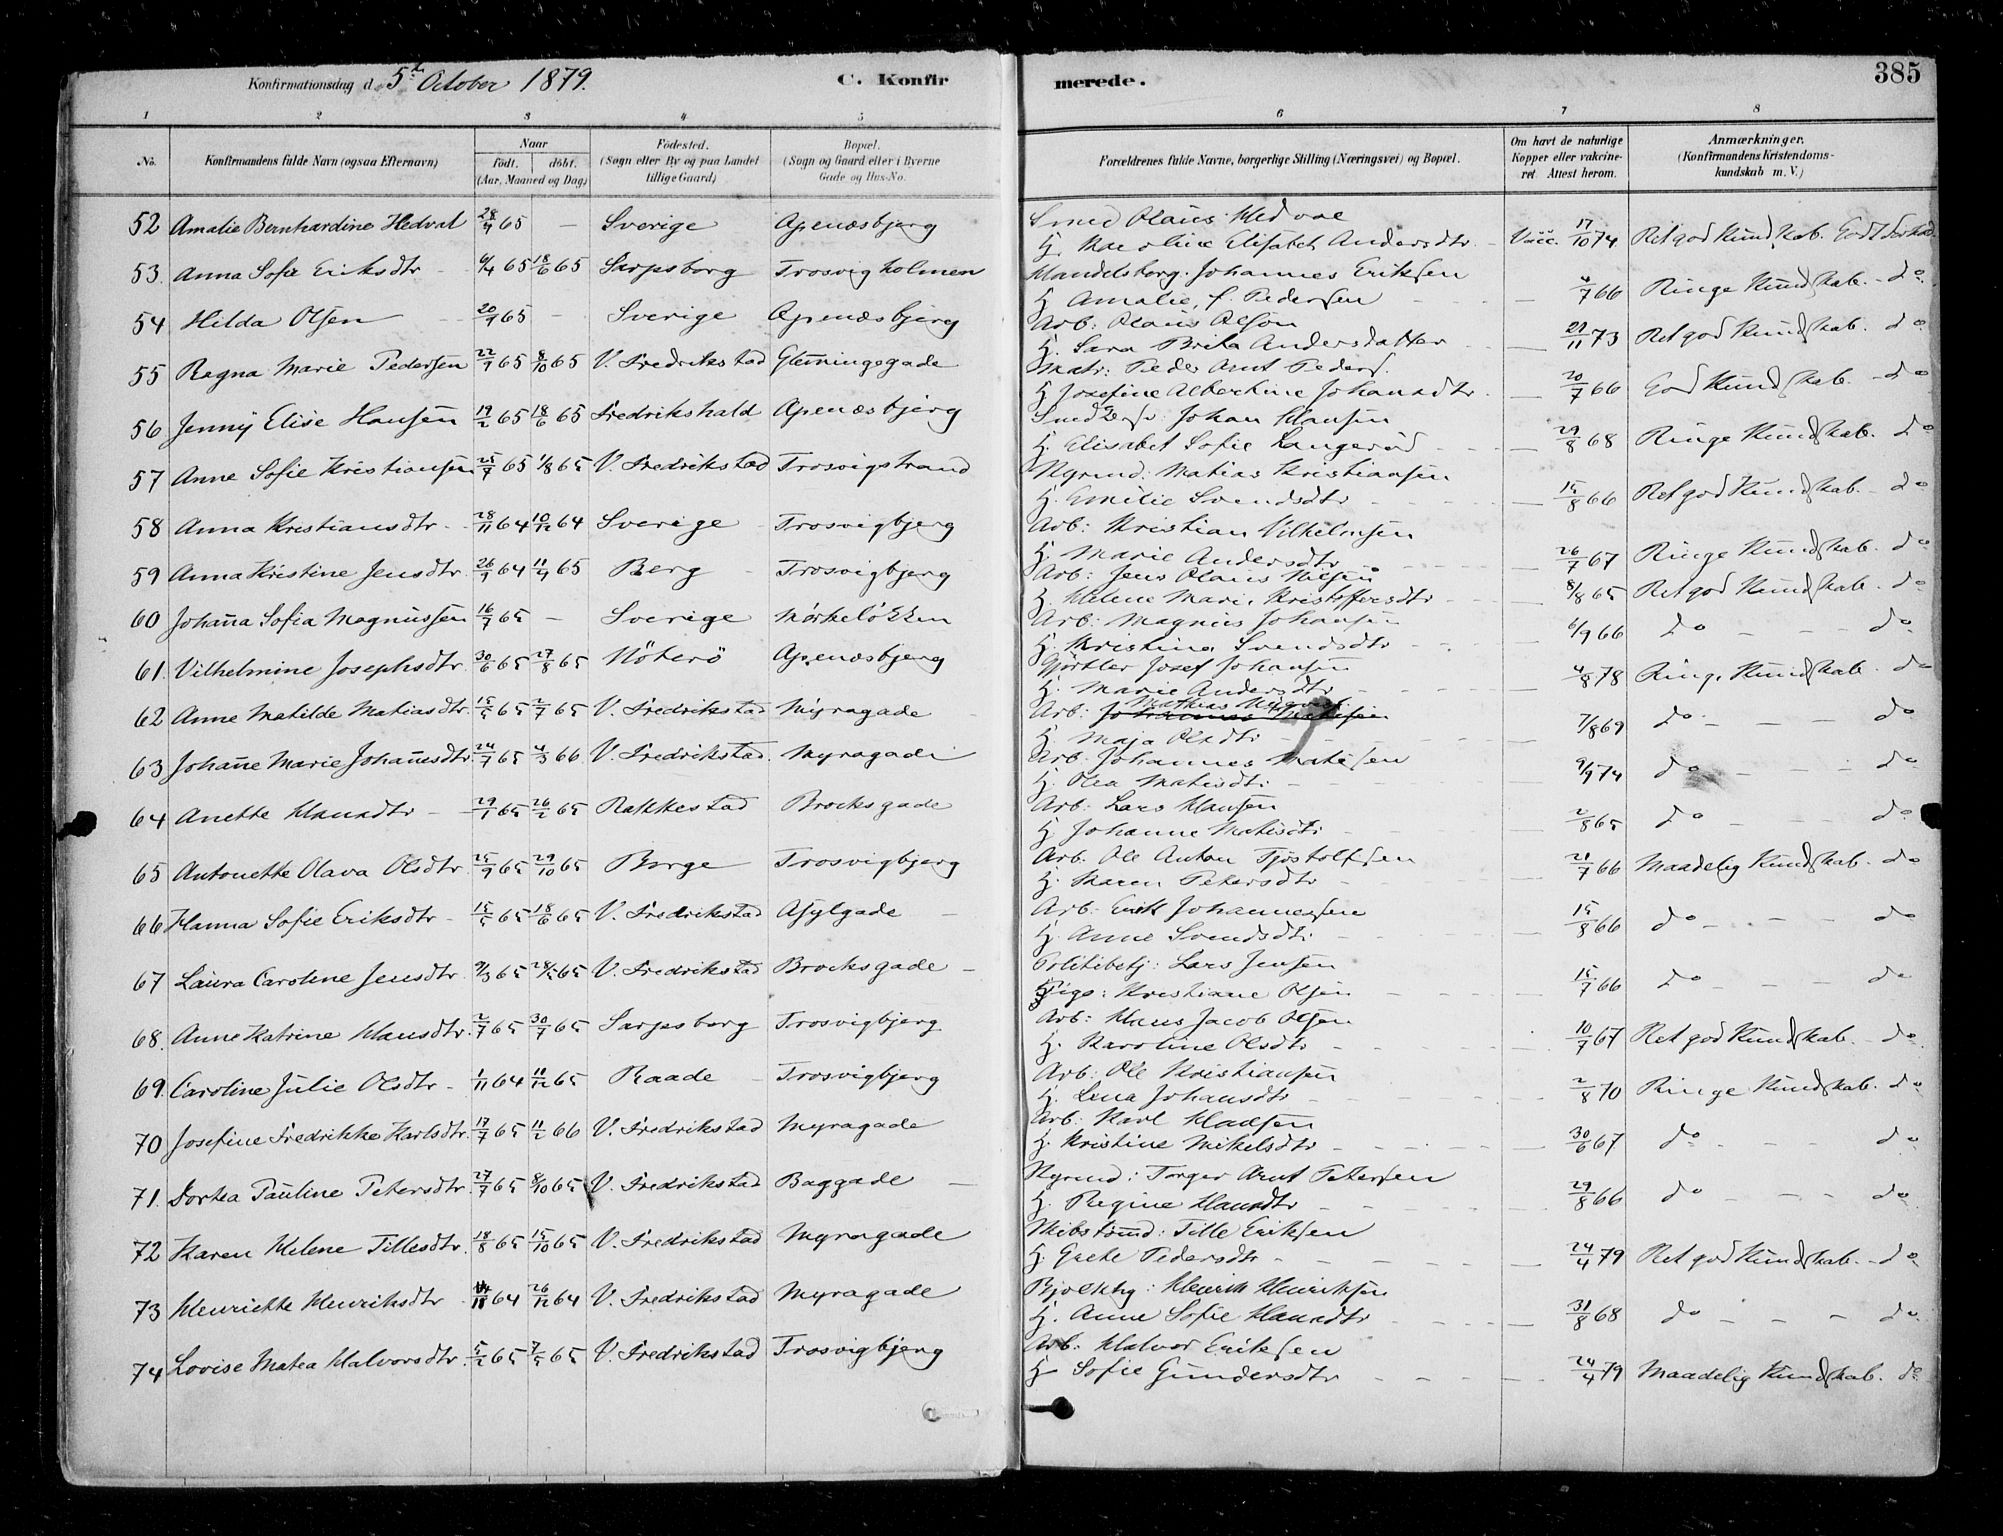 Konfirmationsdag d. 5te October 1879.
C. Konfirmerede.
385
1 2 3 4 5 6 7 8
No.
Konfirmandens fulde Navn (ogsaa Efternavn)
Naar
födt. döbt.
(Aar, Maaned og Dag)
Födested.
(Sogn eller By og paa Landet tillige Gaard)
Bopæl.
(Sogn og Gaard eller i Byerne Gade og Hus-No.
Forældrenes fulde Navne, borgerlige Stilling (Næringsvei) og Bopæl.
Om havt de naturlige Kopper eller vakcineret. Attest herom.
Anmærkninger.
(Konfirmandens Kristendomskundskab m. V.)
52 Amalie Bernhardine Hedval 28/9 65 – Sverige Apenæsbjerg Smed Olaüs Hedval
H. Karoline Elisabeth Andersdtr. Vacc. 17/10 74 Ret god Kundskab. Godt Forhold
53. Anna Sofie Eriksdtr 6/4 65 18/6 65 Sarpsborg Trosvigholmen Handelsborg. Johannes Eriksen
H. Amalie, f. Pedersen – 4/7 66 Ringe Kundskab. do
54 Hilda Olsen 20/9 65 – Sverige Apenæsbjerg Arb: Olaüs Olson
H. Sara Brita Andersdatter – 29/11 73 Ret god Kundskab. do
55 Ragna Marie Pedersen 22/7 65 8/10 65 V. Fredrikstad Glemningegade Matr: Peder Arnt Peders.
H. Josefine Albertine Johansdtr. – 20/7 66 God Kundskab. do
56 Jenny Elise Hansen 19/2 65 18/6 65 Fredrikshald Apenæsbjerg Johan Hansen
H. Elisabet Sofie Langeröd – 29/8 68 Ringe Kundskab. do
57 Anne Sofie Kristiansen 25/7 65 1/8 65 V. Fredrikstad Trosvigstrand Matias Kristiansen
H. Emilie Svendsdtr – 15/8 66 Ret god Kundskab. do
58 Anna Kristiansdtr. 28/11 64 10/12 64 Sverige Trosvigbjerg Arb: Kristian Vilhelmsen
H. Marie Andersdtr – 26/7 67 Ringe Kundskab. do
59 Anna Kristine Jensdtr. 26/9 64 11/4 65 Berg Trosvigbjerg Arb: Jens Olaus Nilsen
H. Helene Marie Kristoffersdtr – 8/8 65 Ret god Kundskab. do
60 Johanna Sofia Magnussen 16/7 65 – Sverige Mörkelökken Arb: Magnus Johansen
H. Kristina Svendsdtr 6/9 66 do – do
61. Vilhelmine Josephsdtr. 30/6 65 27/8 65 Nöterö Apenæsbjerg Gjörtler Josef Johansen
H. Marie Andersdtr – 4/8 78 Ringe Kundskab do
62 Anne Matilde Matiasdtr. 15/5 65 2/7 65 V. Fredrikstad Myragade Arb: Johannes Matisen Mathias
H. Maja Olsdtr – 7/8 69 do – do
63 Johanne Marie Johannesdtr. 24/7 65 4/3 66 V. Fredrikstad. Myragade Arb. Johannes Matisen
H. Olea Matisdtr. – 9/9 74 do – do
64 Anette Hansdtr 29/1 65 26/2 65 Rakkestad Brocksgade Arb: Lars Hansen
H. Johanne Matisdtr. – 2/8 65 do – do
65 Antonette Olava Olsdtr. 25/9 65 29/10 65 Borge Trosvigbjerg Arb. Ole Anton Tjöstolfsen
H. Karen Petersdtr – 21/7 66 Maadelig Kundskab. do
66 Hanna Sofie Eriksdtr 15/5 65 18/6 65 V. Fredrikstad Asylgade Arb. Erik Johannessen
H. Anne Svendsdtr. – 15/8 66 do – do
67 Laura Caroline Jensdtr. 9/3 65 28/5 65 V. Fredrikstad Brocksgade Politibetj: Lars Jensen
Pige: Kristiane Olsen – 15/7 66 do – do
68. Anne Katrine Hansdtr. 2/7 65 30/7 65 Sarpsborg Trosvigbjerg Arb: Hans Jacob Olsen
H. Karoline Olsdtr – 10/7 67 Ret god Kundskab. do
69. Caroline Julie Olsdtr. 1/11 64 11/12 65 Raade Trosvigbjerg Arb: Ole Kristiansen
H. Lina Johansdtr – 2/8 70 Ringe Kundskab. do
70 Josefine Fredrikke Karlsdtr. 17/7 65 11/2 66 V. Fredrikstad Myragade Arb: Karl Hansen
H. Kristine Mikelsdtr – 30/6 67 do – do
71. Dortea Pauline Petersdtr. 27/7 65 8/10 65 V. Fredrikstad Baggade Torger Arnt Petersen
H. Regine Hansdtr – 29/8 66 do – do
72 Karen Helene Tillesdtr. 18/8 65 15/10 65 V. Fredrikstad Myragade Skibstömd: Tille Eriksen
H. Grete Pedersdtr – 24/4 79 Ret god Kundskab. do
73 Henriette Henriksdtr 64 26/12 64 V. Fredrikstad Myragade Henrik Henriksen
H. Anne Sofie Hansdtr – 31/8 68 do – do
74 Lovise Matea Halvorsdtr. 5/2 65 7/5 65 V. Fredrikstad Trosvigbjerg Arb. Halvor Eriksen
H. Sofie Gundersdtr – 24/4 79 Maadelig Kundskab. do